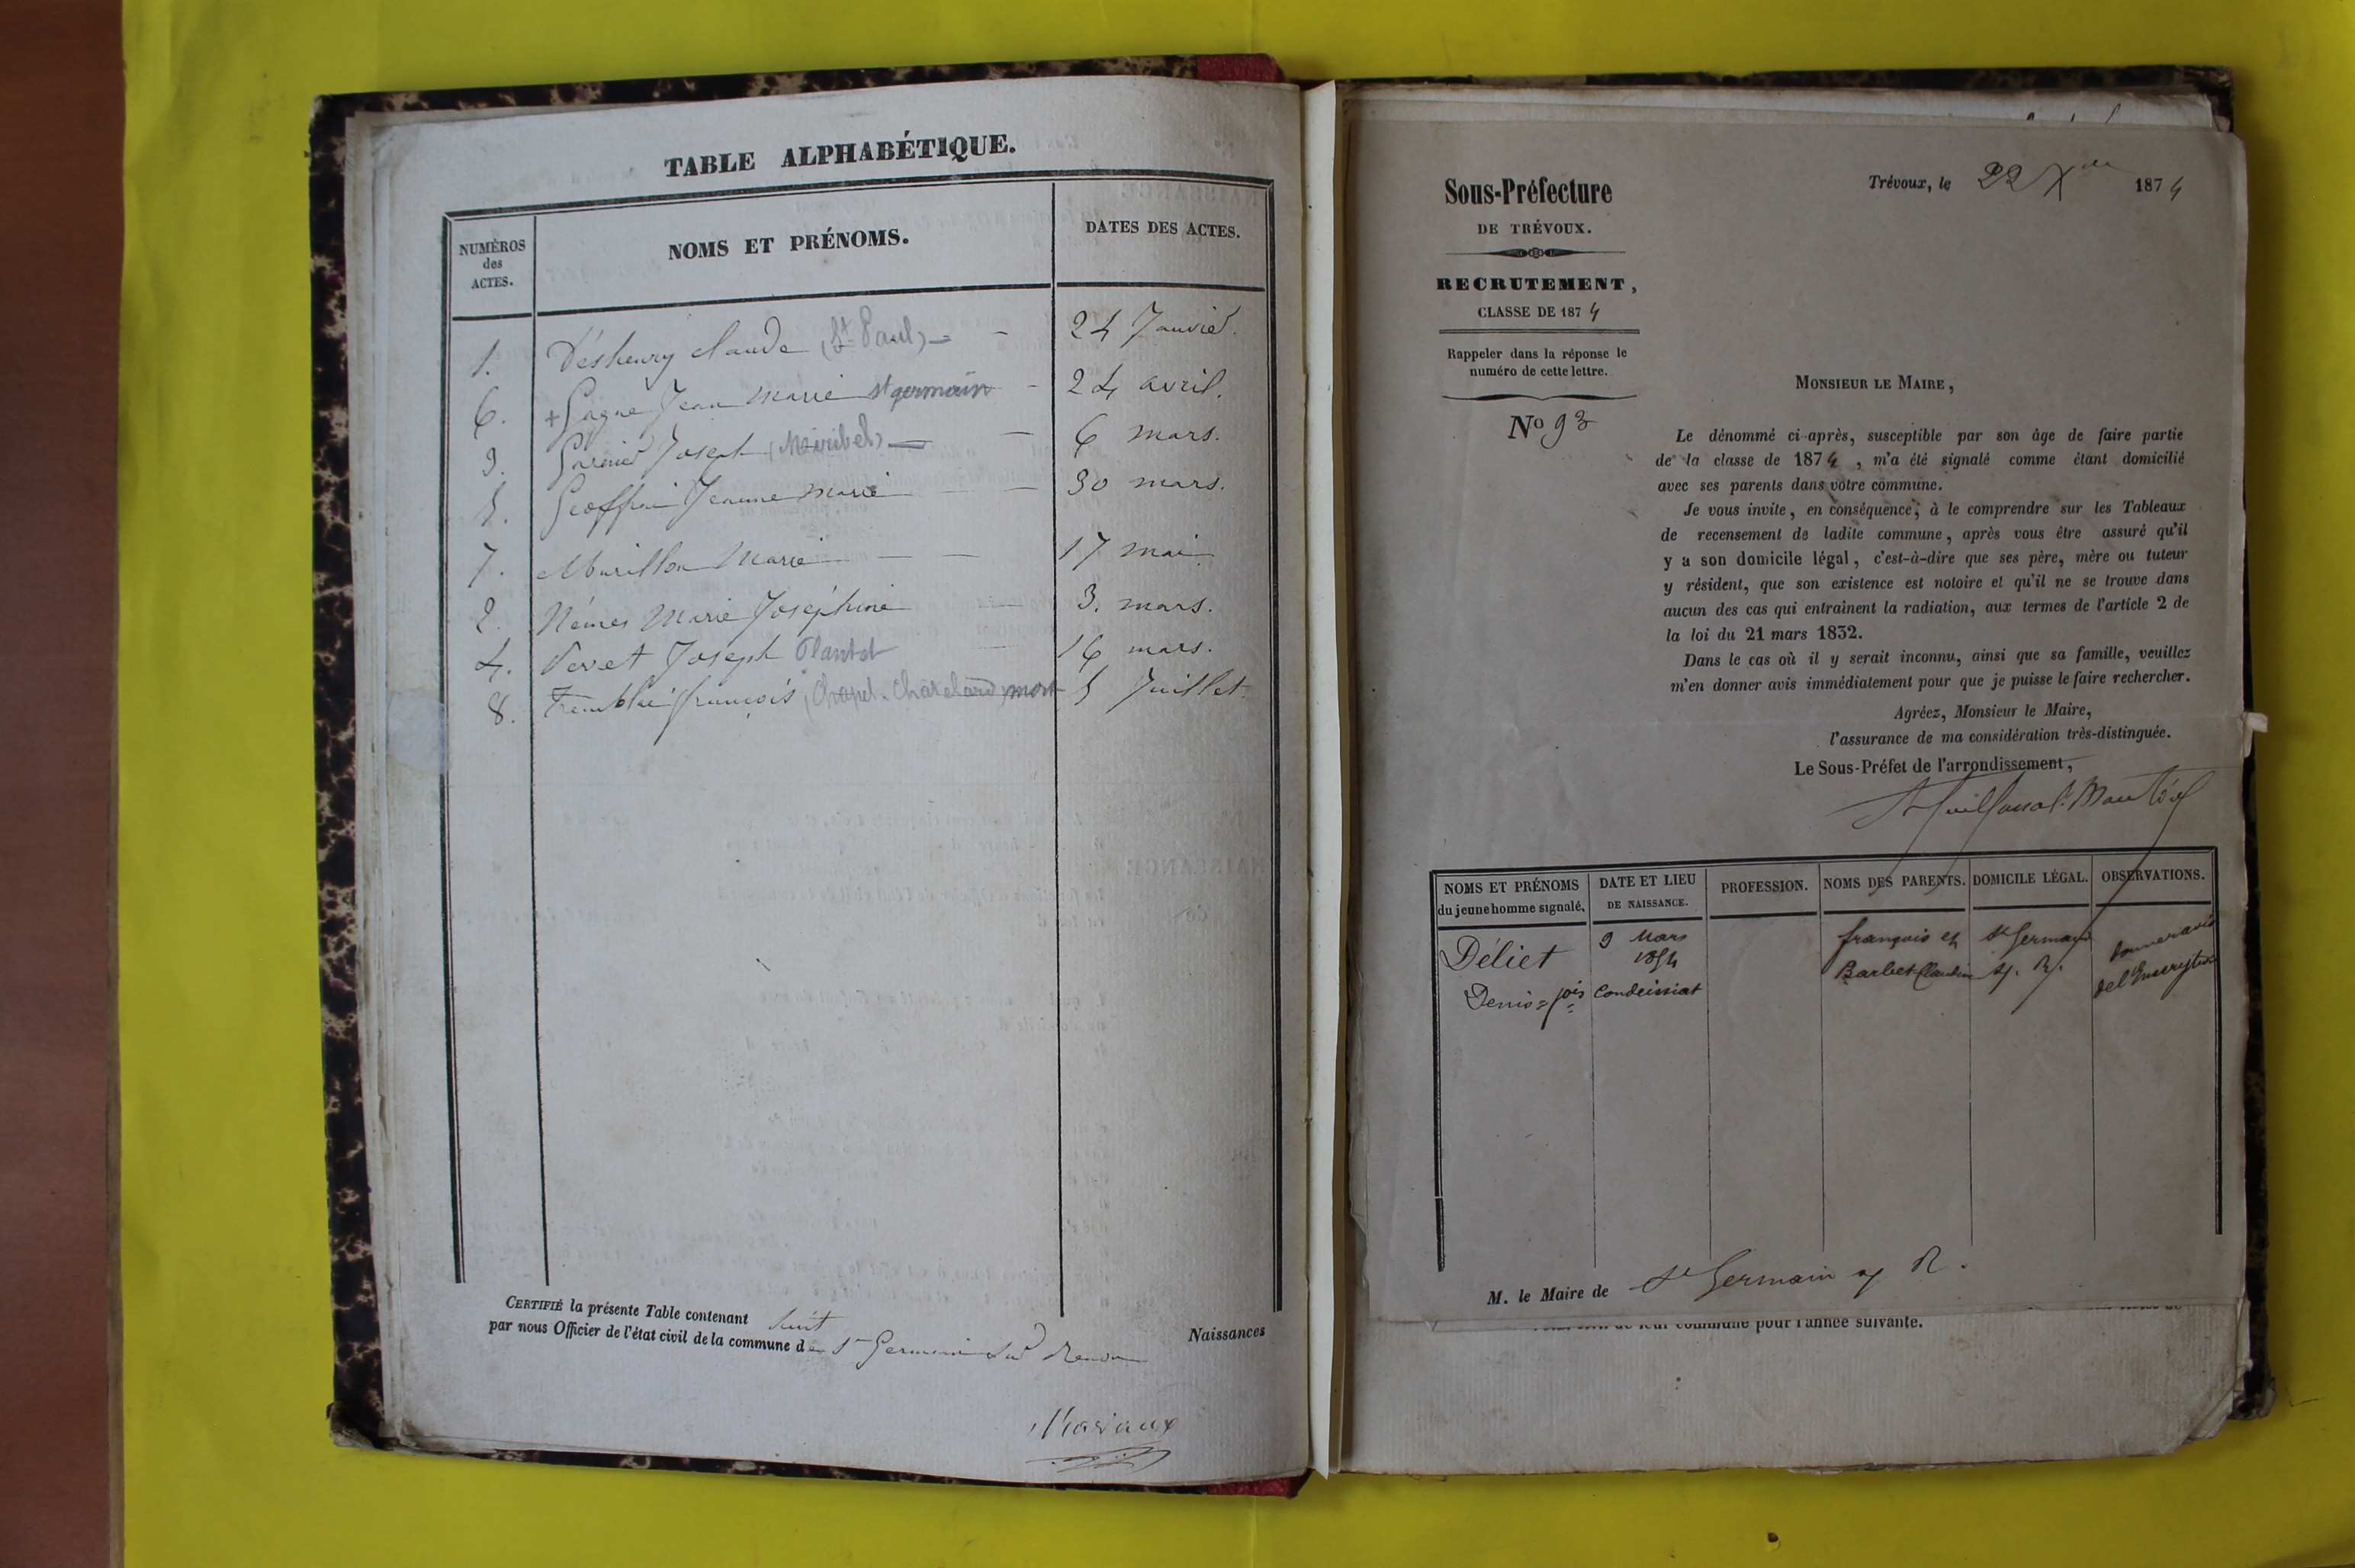 TABLE ALPHABÉTIQUE.
NUMÉROS
des
ACTES.
NOMS ET PRÉNOMS.
DATES DES ACTES.
1. Deshenry Claude (St Paul) 24 Janvier.
6. + Gagne Jean Marie St germain 24 avril.
3. Garnier Joseph (Miribel) 6 mars.
5. Jeanne Marie 30 mars.
7. Marie 17 mai
2. Marie Joséphine 3. mars.
4. Joseph Plantet 16 mars.
8. françois (Chapel. Chatelard) mort 5 Juillet.
CERTIFIÉ la présente Table contenant huit Naissances
par nous Officier de l'état civil de la commune de St Germain sur Renon
Sous-Préfecture
DE TRÉVOUX.
RECRUTEMENT,
CLASSE DE 1874
Rappeler dans la réponse le
numéro de cette lettre.
No 93
Trévoux, le 22 Xbre 1874
MONSIEUR LE MAIRE,
Le dénommé ci-après, susceptible par son âge de faire partie
de la classe de 1874, m'a été signalé comme étant domicilié
avec ses parents dans votre commune.
Je vous invite, en conséquence, à le comprendre sur les Tableaux
de recensement de ladite commune, après vous être assuré qu'il
y a son domicile légal, c'est-à-dire que ses père, mère ou tuteur
y résident, que son existence est notoire et qu'il ne se trouve dans
aucun des cas qui entraînent la radiation, aux termes de l'article 2 de
la loi du 21 mars 1832.
Dans le cas où il y serait inconnu, ainsi que sa famille, veuillez
m'en donner avis immédiatement pour que je puisse le faire rechercher.
Agréez, Monsieur le Maire,
l'assurance de ma considération très-distinguée.
Le Sous-Préfet de l'arrondissement,
NOMS ET PRÉNOMS
du jeune homme signalé.
DATE ET LIEU
DE NAISSANCE.
PROFESSION.
NOMS DES PARENTS.
DOMICILE LÉGAL.
OBSERVATIONS.
Déliet
Denis=fois
9 Mars
1854
Condeissiat
françois et
Barbet Claudine
St Germain
s. R.
donner avis
de l'Inscription
M. le Maire de St Germain s R.
de leur commune pour l'année suivante.